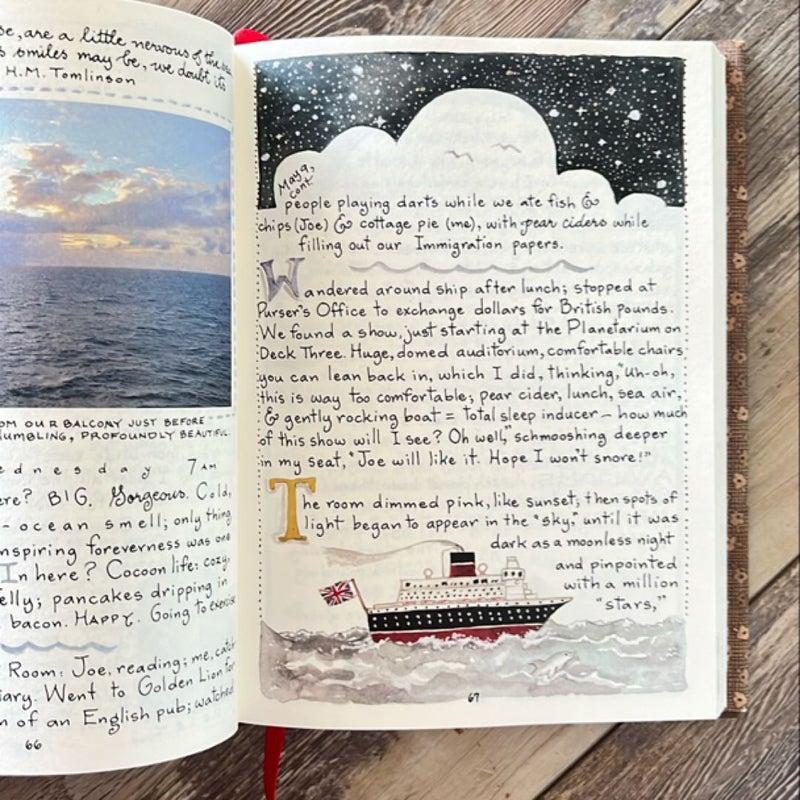 se, are a little nervous of the sea
s smiles may be, we doubt its
H.M. Tomlinson
OM OUR BALCONY JUST BEFORE
UMBLING, PROFOUNDLY BEAUTIFUL.
ednesday 7AM
ere? BIG. Gorgeous. Cold,
- ocean smell; only thing
nspiring foreverness was one
In here? Cocoon life: cozy,
elly; pancakes dripping in
bacon. HAPPY. Going to exercise
Room: Joe, reading; me, catch
iary. Went to Golden Lion for
n of an English pub; watched
66
May 9,
cont.
people playing darts while we ate fish &
chips (Joe) & cottage pie (me), with pear ciders while
filling out our Immigration papers.
Wandered around ship after lunch; stopped at
Purser's Office to exchange dollars for British pounds.
We found a show, just starting at the Planetarium on
Deck Three. Huge, domed auditorium, comfortable chairs
you can lean back in, which I did, thinking, "Uh-oh,
this is way too comfortable; pear cider, lunch, sea air,
& gently rocking boat = total sleep inducer – how much
of this show will I see? Oh well," schmooshing deeper
in my seat, "Joe will like it. Hope I won't snore!"
The room dimmed pink, like sunset; then spots of
light began to appear in the "sky," until it was
dark as a moonless night
and pinpointed
with a million
"stars,"
67